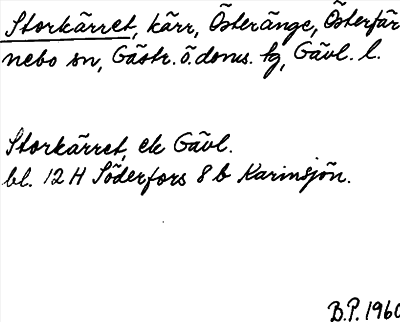 Storkärret, kärr, Österänge, Österfär
nebo sn, Gästr. ö. doms. tg, Gävl. l.
Storkärret, ek Gävl.
bl. 12 H Söderfors 8 b Karinsjön.
B.P. 1960